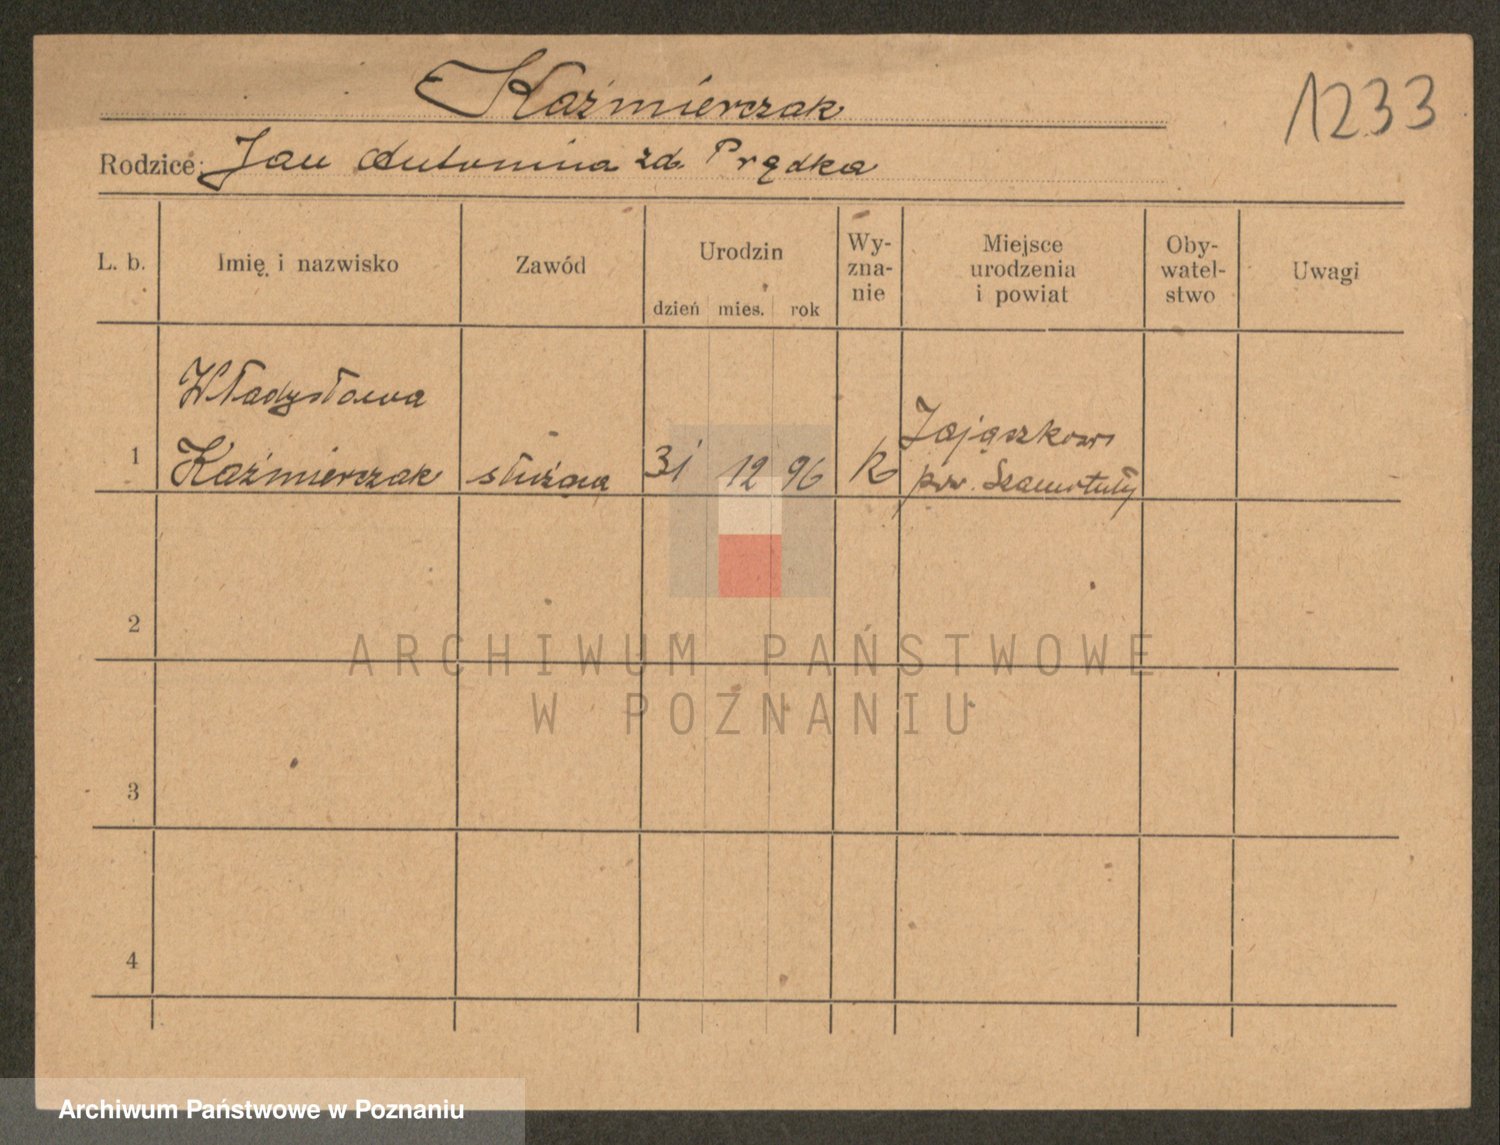 Kaźmierczak
1233
Rodzice: Jan Antonina zd. Prądka
L. b. Imię i nazwisko Zawód Urodzin dzień mies. rok Wy-
zna-
nie Miejsce
urodzenia
i powiat Oby-
watel-
stwo Uwagi
Władysława
1 Kaźmierczak służąca 31 12 96 R Zajączkowo
pow. Szamotuły
2
3
4
ARCHIWUM PAŃSTWOWE
W POZNANIU
Archiwum Państwowe w Poznaniu